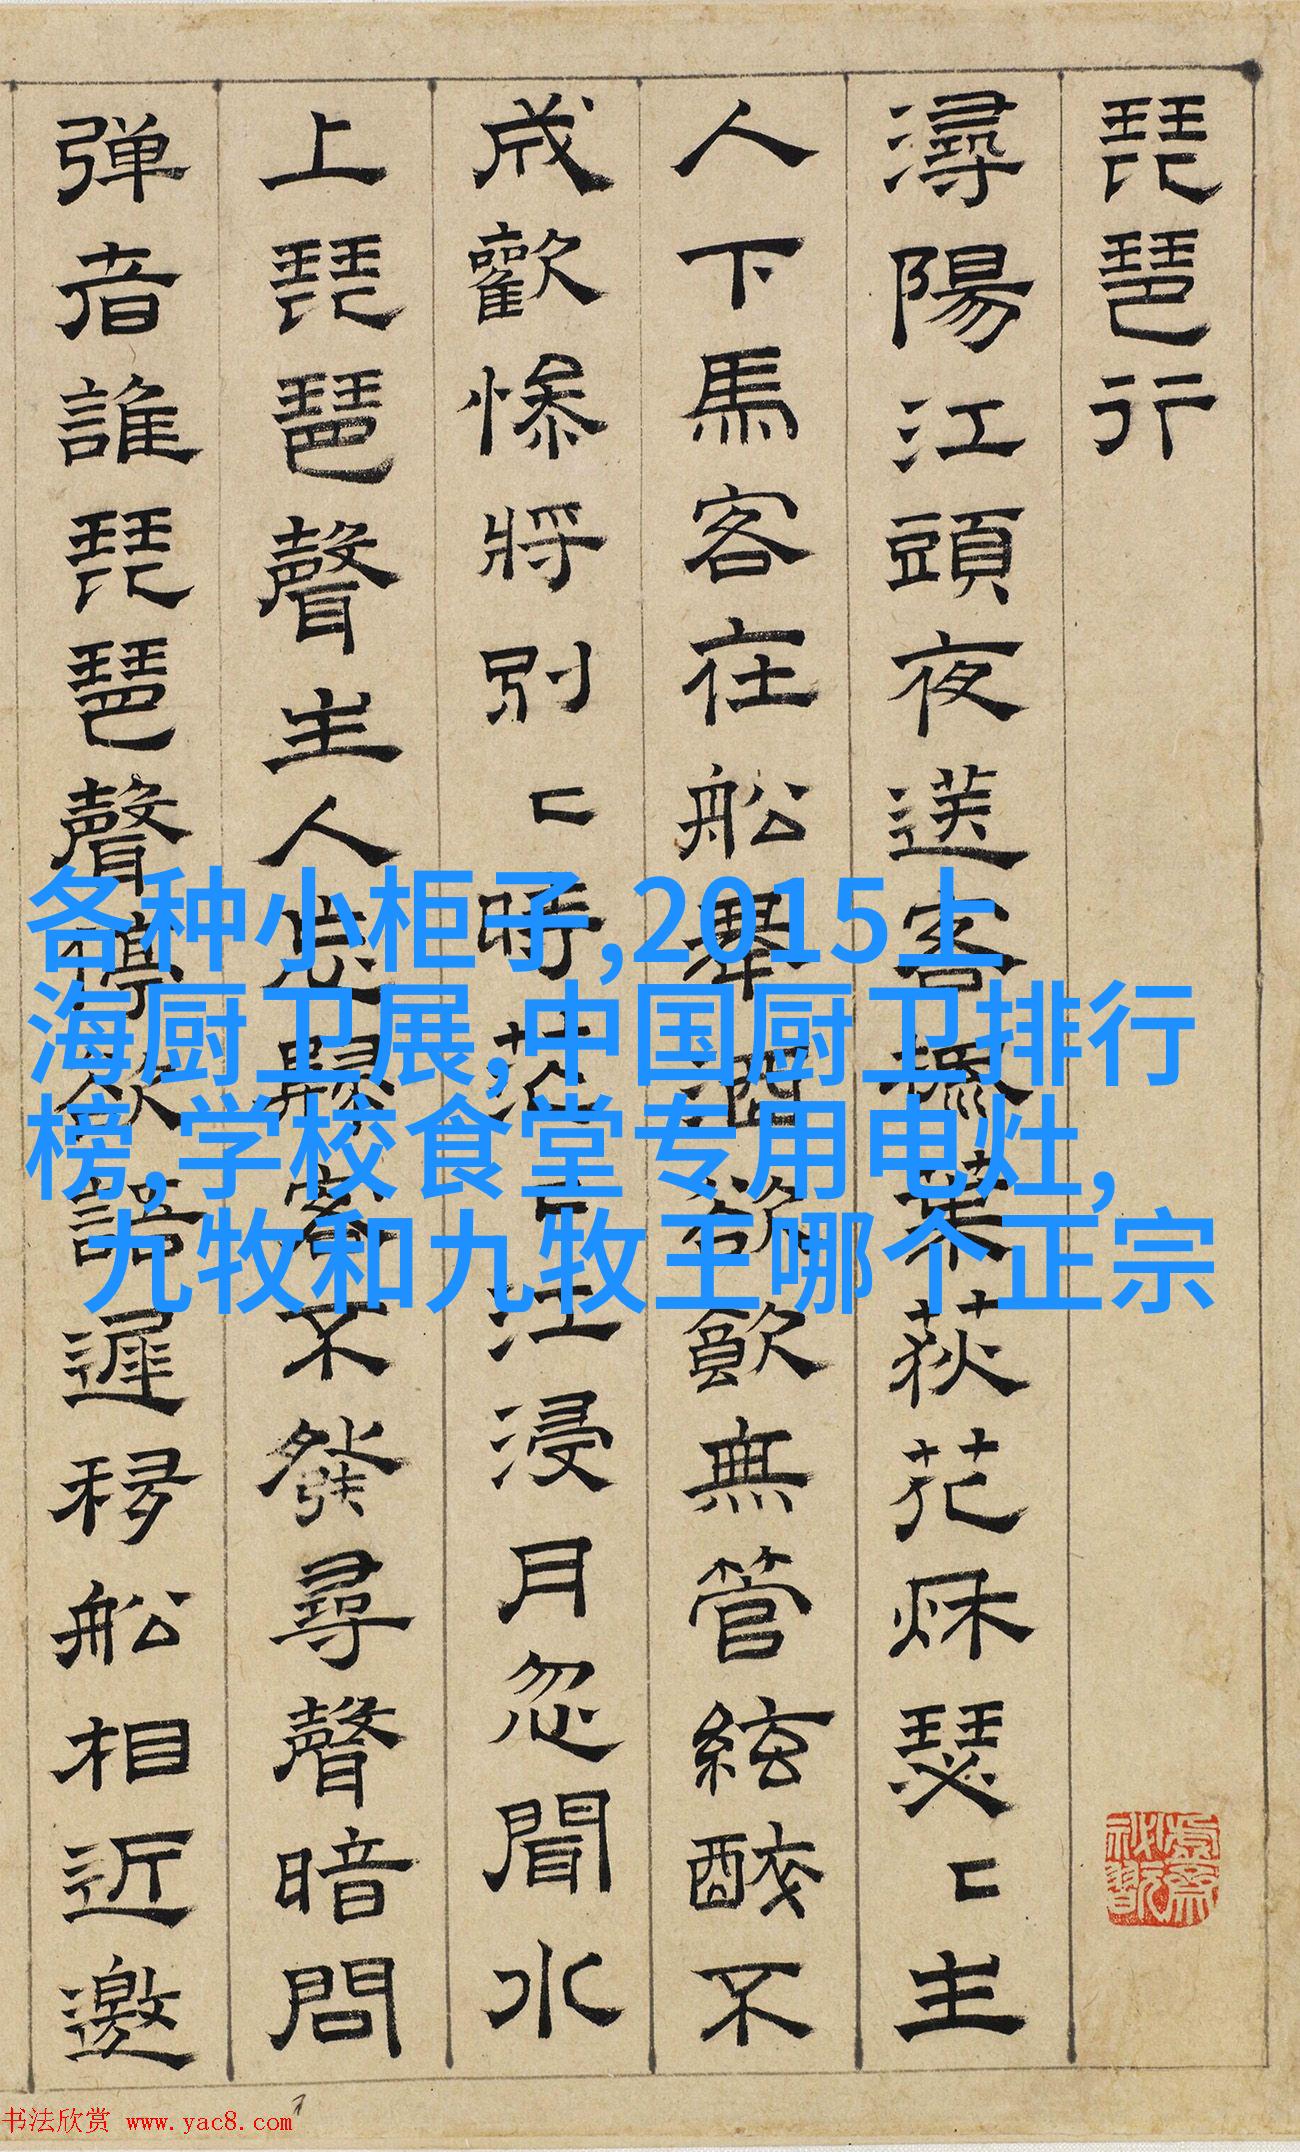 琵琶行
潯陽江頭夜送客楓葉荻花秌瑟〻主
人下馬客在船舉酒欲飲無管絃醉不
成歡慘將別〻時茫〻江浸月忽聞水
上琵琶聲主人忘歸客不發尋聲暗問
弹者誰琵琶聲停欲語遲移船相近邀
各种小柜子,2015上
海厨卫展,中国厨卫排行
榜,学校食堂专用电灶,
九牧和九牧王哪个正宗
书法欣赏 www.yac8.com